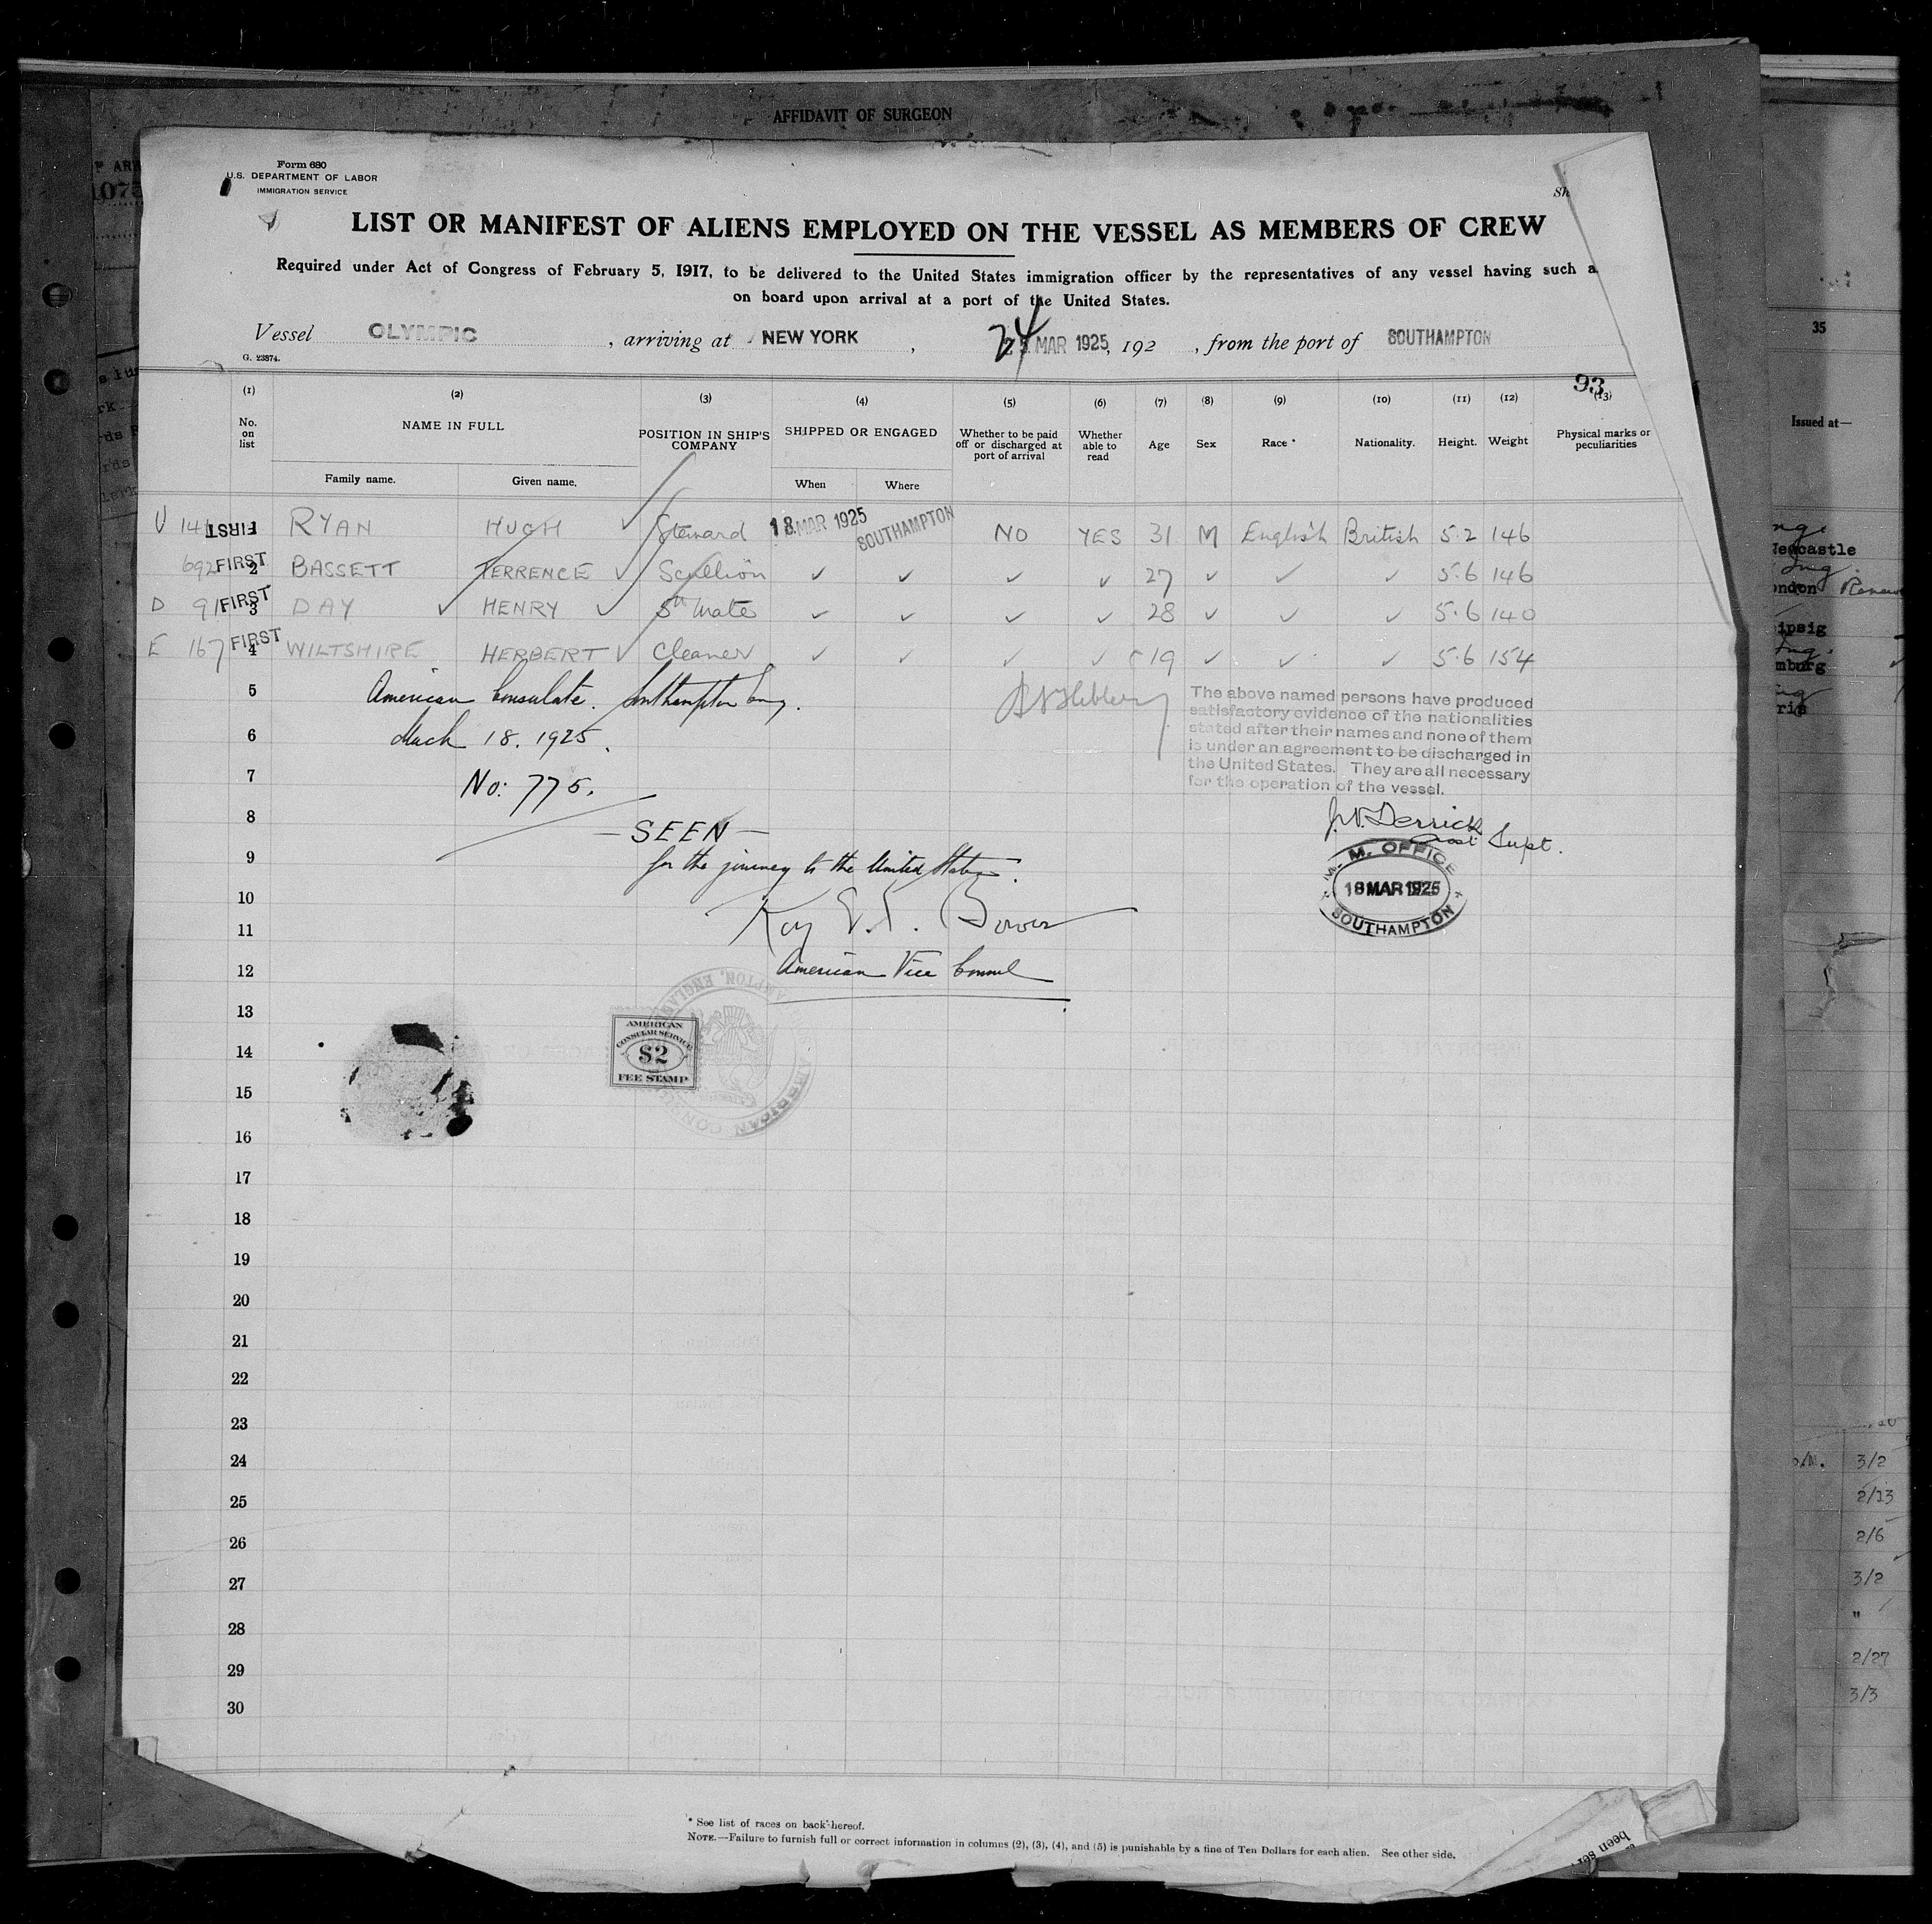 AFFIDAVIT OF SURGEON
Form 680
U.S. DEPARTMENT OF LABOR
IMMIGRATION SERVICE
LIST OR MANIFEST OF ALIENS EMPLOYED ON THE VESSEL AS MEMBERS OF CREW
Required under Act of Congress of February 5, 1917, to be delivered to the United States immigration officer by the representatives of any vessel having such a
on board upon arrival at a port of the United States.
Vessel OLYMPIC, arriving at NEW YORK, 24 MAR 1925, 192 , from the port of SOUTHAMPTON
G. 23874.
93
(1) (2) (3) (4) (5) (6) (7) (8) (9) (10) (11) (12) (13)
No. on list NAME IN FULL POSITION IN SHIP'S COMPANY SHIPPED OR ENGAGED Whether to be paid off or discharged at port of arrival Whether able to read Age Sex Race * Nationality. Height. Weight Physical marks or peculiarities
Family name. Given name. When Where
FIRST RYAN HUGH Steward 18 MAR 1925 SOUTHAMPTON NO YES 31 M English British 5.2 146
692 FIRST 2 BASSETT TERRENCE ✓ Scullion ✓ ✓ ✓ ✓ 27 ✓ ✓ ✓ 5.6 146
D 91 FIRST 3 DAY ✓ HENRY ✓ 5th Mate ✓ ✓ ✓ ✓ 28 ✓ ✓ ✓ 5.6 140
E 167 FIRST 4 WILTSHIRE HERBERT ✓ Cleaner ✓ ✓ ✓ ✓ 19 ✓ ✓ ✓ 5.6 154
5 American Consulate. Southampton Eng.
6 March 18. 1925.
7 No: 775.
The above named persons have produced
satisfactory evidence of the nationalities
stated after their names and none of them
is under an agreement to be discharged in
the United States. They are all necessary
for the operation of the vessel.
8 — SEEN —
J. W. Derrick
Asst Supt.
9 for the journey to the United States.
M. OFFICE
18 MAR 1925
SOUTHAMPTON
10
11 Roy E. B. Bower
12 American Vice Consul
13
AMERICAN
CONSULAR SERVICE
$2
FEE STAMP
14
15
16
17
18
19
20
21
22
23
24
25
26
27
28
29
30
* See list of races on back hereof.
NOTE.—Failure to furnish full or correct information in columns (2), (3), (4), and (5) is punishable by a fine of Ten Dollars for each alien. See other side.
35
Issued at—
Newcastle
3/2
2/13
2/6
3/2
"
2/27
3/3